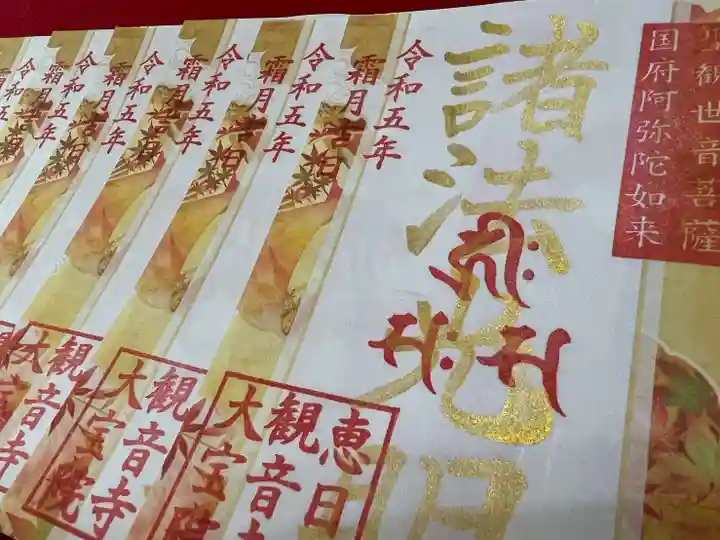 聖観世音菩薩
国府阿弥陀如来
諸法光明
令和五年
霜月吉日
恵日
観音寺
大宝院
令和五年
霜月吉日
観音寺
大宝院
令和五年
霜月吉日
観音寺
大
令和五年
霜月吉日
令和五年
霜月吉日
令和五年